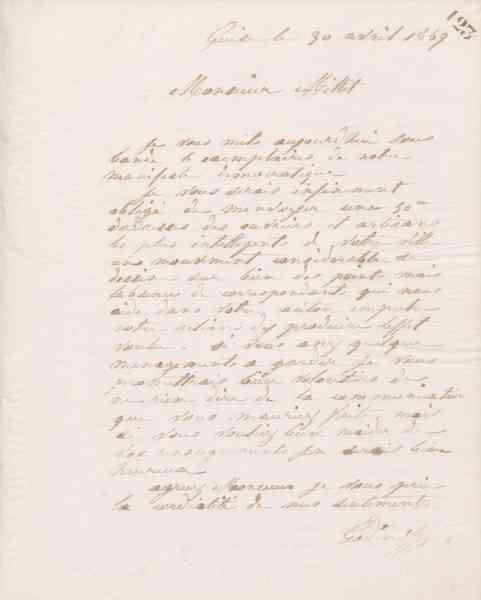 123
Guise le 30 avril 1869
Monsieur Millet
Je vous mets aujourd'hui sous
bande 6 exemplaires de notre
manifeste démocratique
Je vous serais infiniment
obligé de m'envoyer une 50ne
d'adresses des ouvriers et artisans
les plus intelligents de votre ville
un mouvement considérable se
dessine sur bien des points mais
l'absence de correspondants qui nous
aide dans votre canton empeche
notre action d'y produire l'effet
voulu. si vous avez quelque
menagements a garder je vous
promettrais bien volontiers de
ne rien dire de la communication
que vous m'auriez fait, mais
si vous vouliez bien m'aider de
vos renseignements j'en serais bien
heureux
agreez Monsieur je vous prie
la cordialité de mes sentiments
Godin